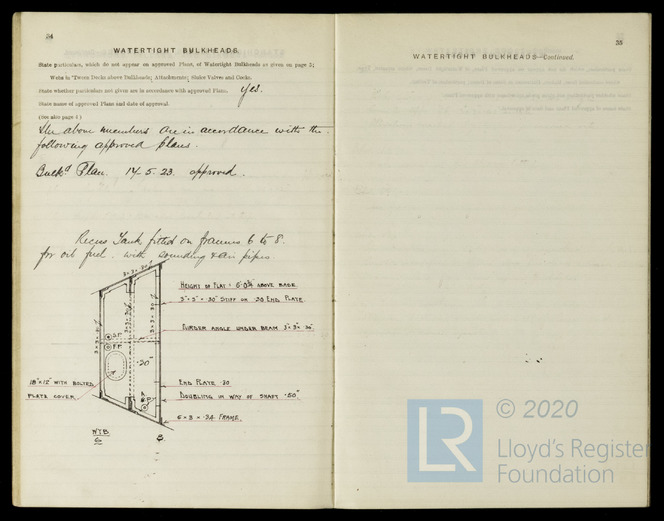 34
WATERTIGHT BULKHEADS.
State particulars, which do not appear on approved Plans, of Watertight Bulkheads as given on page 5;
Webs to 'Tween Decks above Bulkheads; Attachments; Sluice Valves and Cocks.
State whether particulars not given are in accordance with approved Plans. Yes.
State name of approved Plan and date of approval.
(See also page 4.)
The above members are in accordance with the
following approved plans.
Bulkd Plan. 14.5.23. approved.
Recess Tank fitted on frames 6 to 8.
for oil fuel. with sounding & air pipes
HEIGHT OF FLAT = 6'0¾" ABOVE BASE.
3" × 3" × .30" STIFF ON .30 END PLATE.
GIRDER ANGLE UNDER BEAM 3" × 3" × .30"
S.P.
.20
18" × 12" WITH BOLTED
PLATE COVER.
END PLATE .30
DOUBLING IN WAY OF SHAFT .50"
A.P.
6 × 3 × .34 FRAME.
6
8
35
WATERTIGHT BULKHEADS—Continued.
© 2020
LR
Lloyd's Register
Foundation